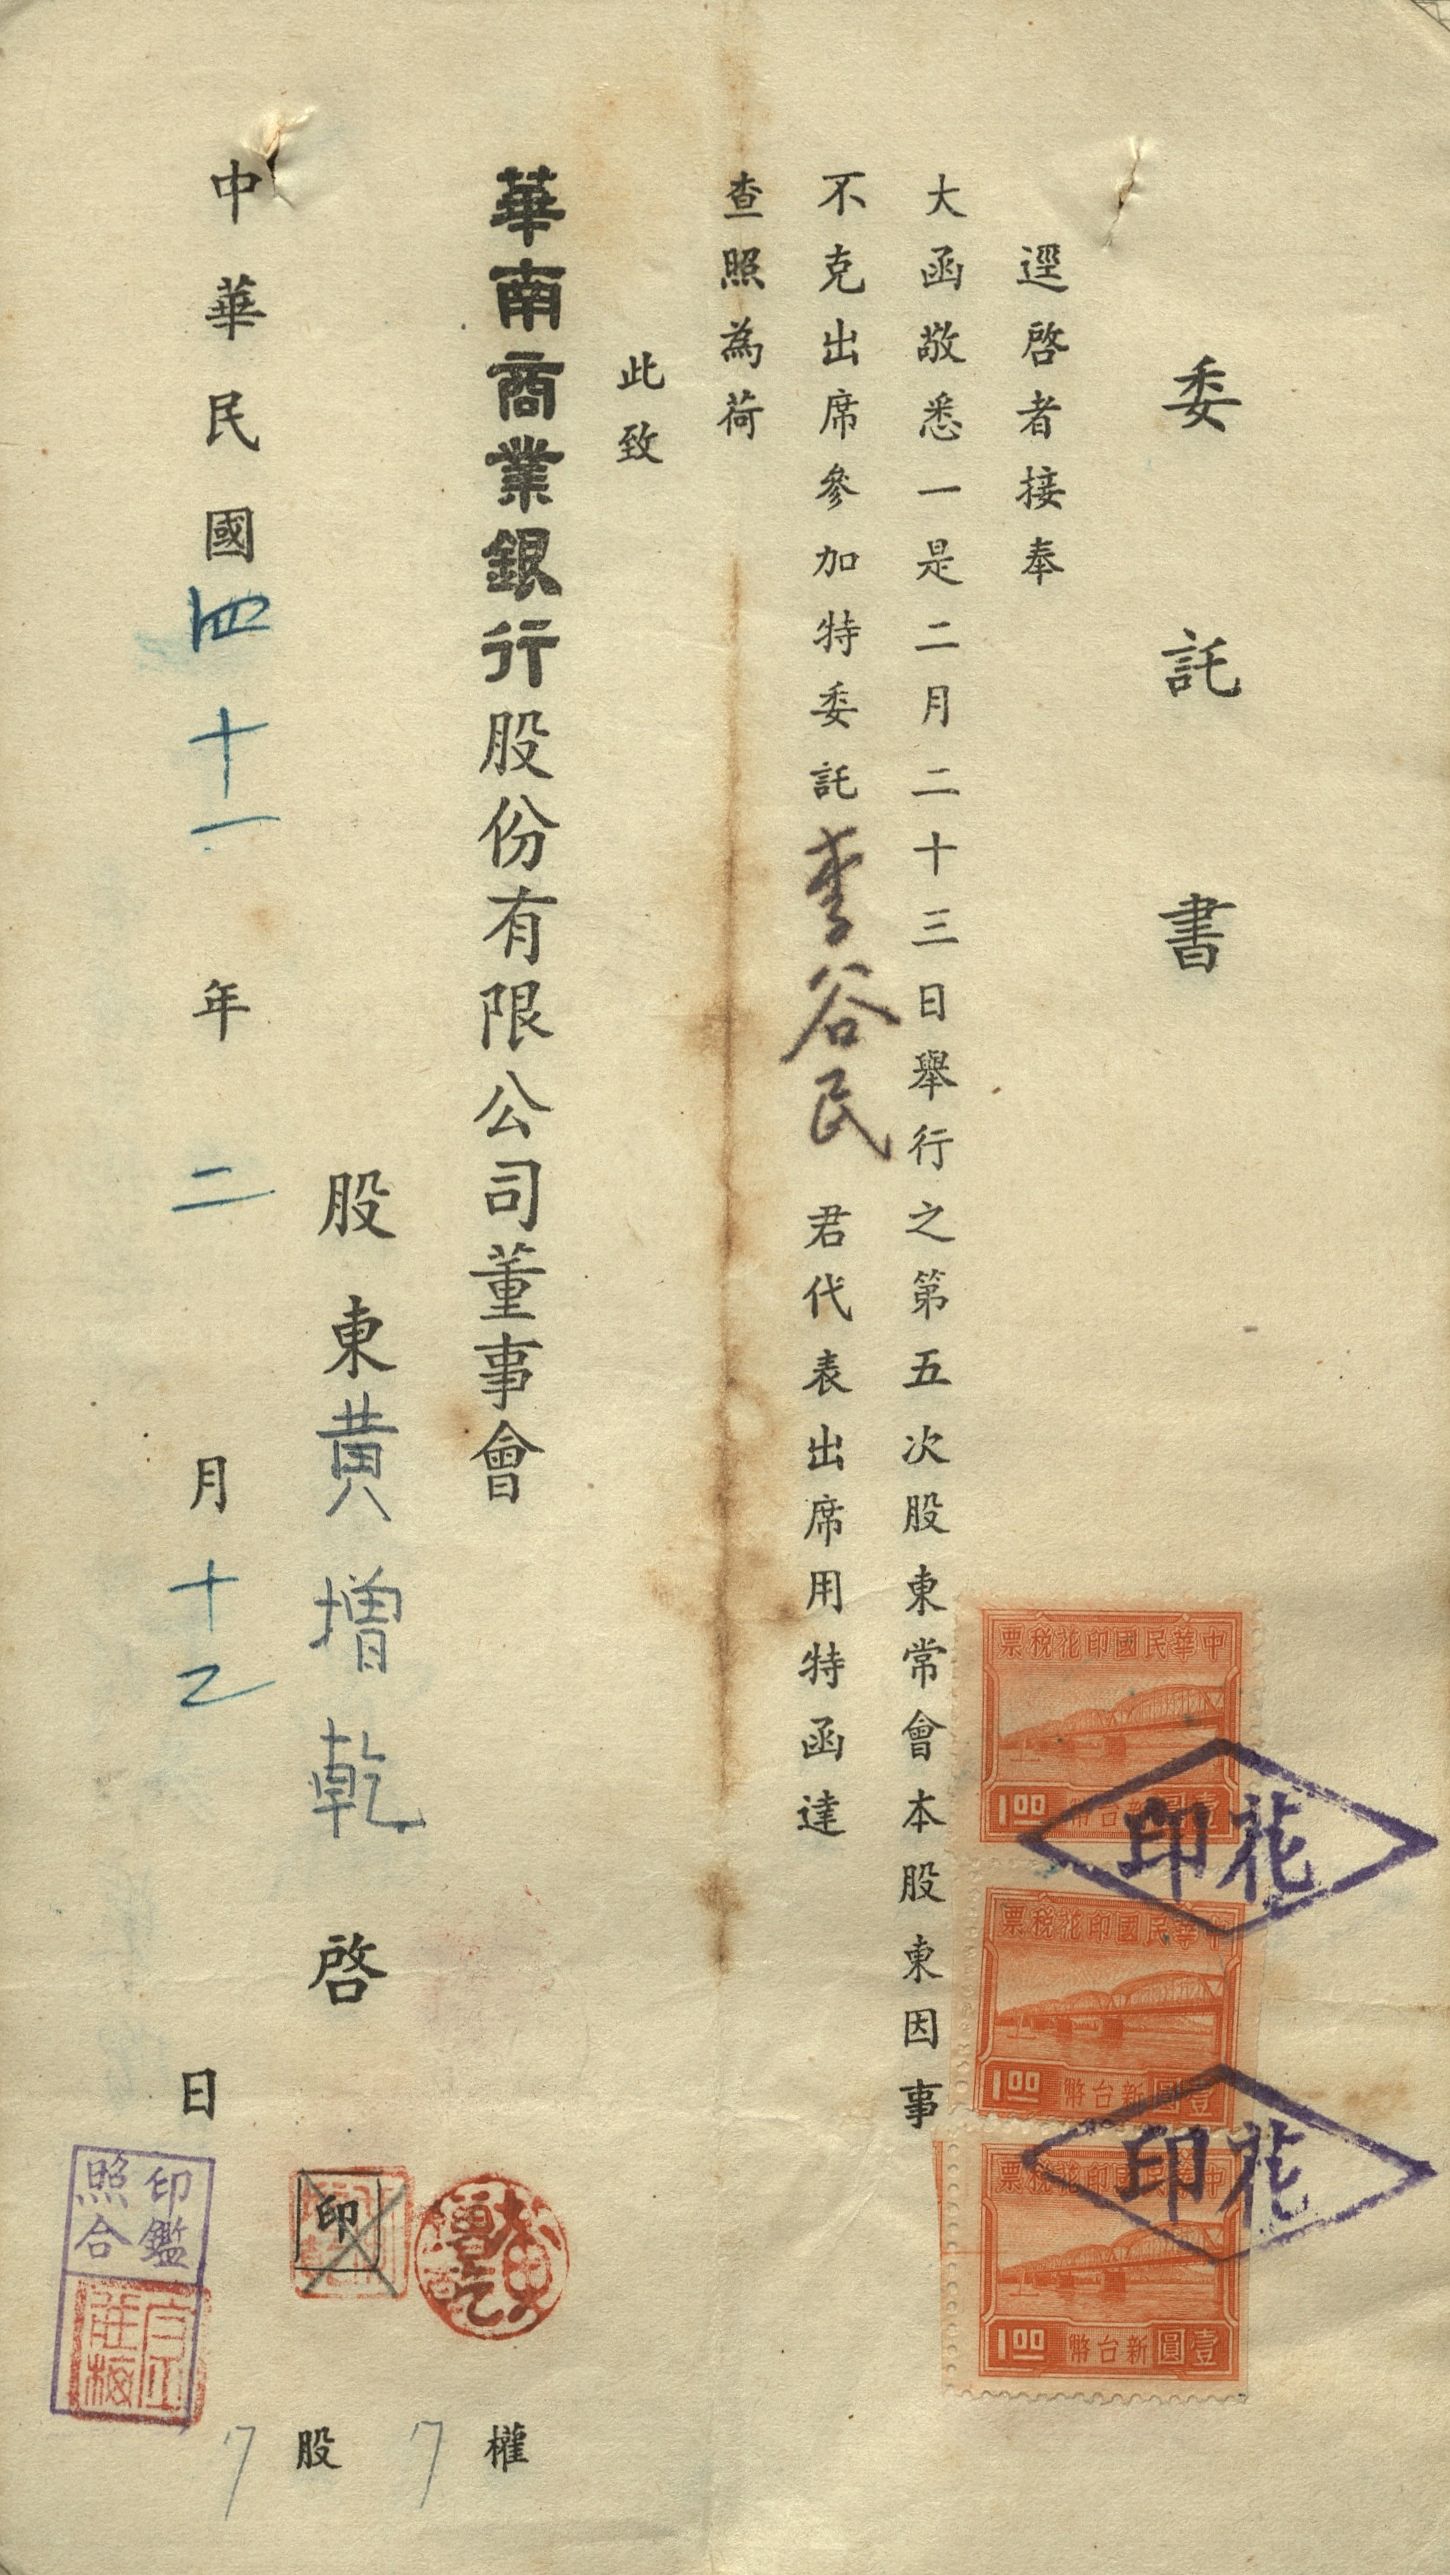 委託書
逕啓者接奉
大函敬悉一是二月二十三日舉行之第五次股東常會本股東因事
不克出席參加特委託李谷民君代表出席用特函達
查照為荷
此致
華南商業銀行股份有限公司董事會
股東黃增乾啓
中華民國四十一年二月十乙日
中華民國印花稅票
壹圓新台幣
1.00
花印
中華民國印花稅票
壹圓新台幣
1.00
中華民國印花稅票
壹圓新台幣
1.00
花印
印
印鑑
照合
7權
7股